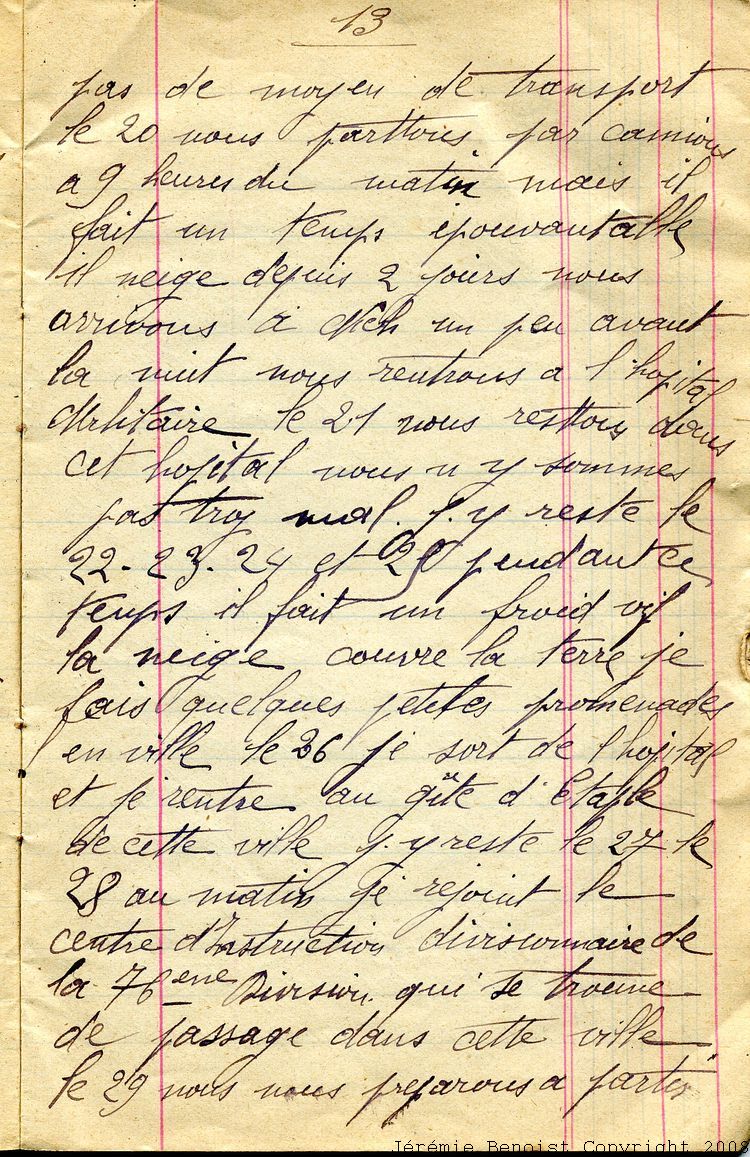 13
pas de moyen de transport
le 20 nous parttons par camions
a 9 heures du matin mais il
fait un temps épouvantable
il neige depuis 2 jours nous
arrivons à Nich un peu avant
la nuit nous rentrons a l'hopital
Militaire le 21 nous resttons dans
cet hopital nous n y sommes
pas trop mal. j.y reste le
22-23.24 et 25 pendant ce
temps il fait un froid vif
la neige couvre la terre je
fais quelques petites promenades
en ville le 26 je sort de l hopital
et je rentre au gîte d'Etaple
de cette ville j.y reste le 27 le
28 au matin je rejoint le
centre d'Instruction divisionnaire de
la 76eme Division qui se trouve
de passage dans cette ville
le 29 nous nous preparons a partir
Jérémie Benoist Copyright 2008